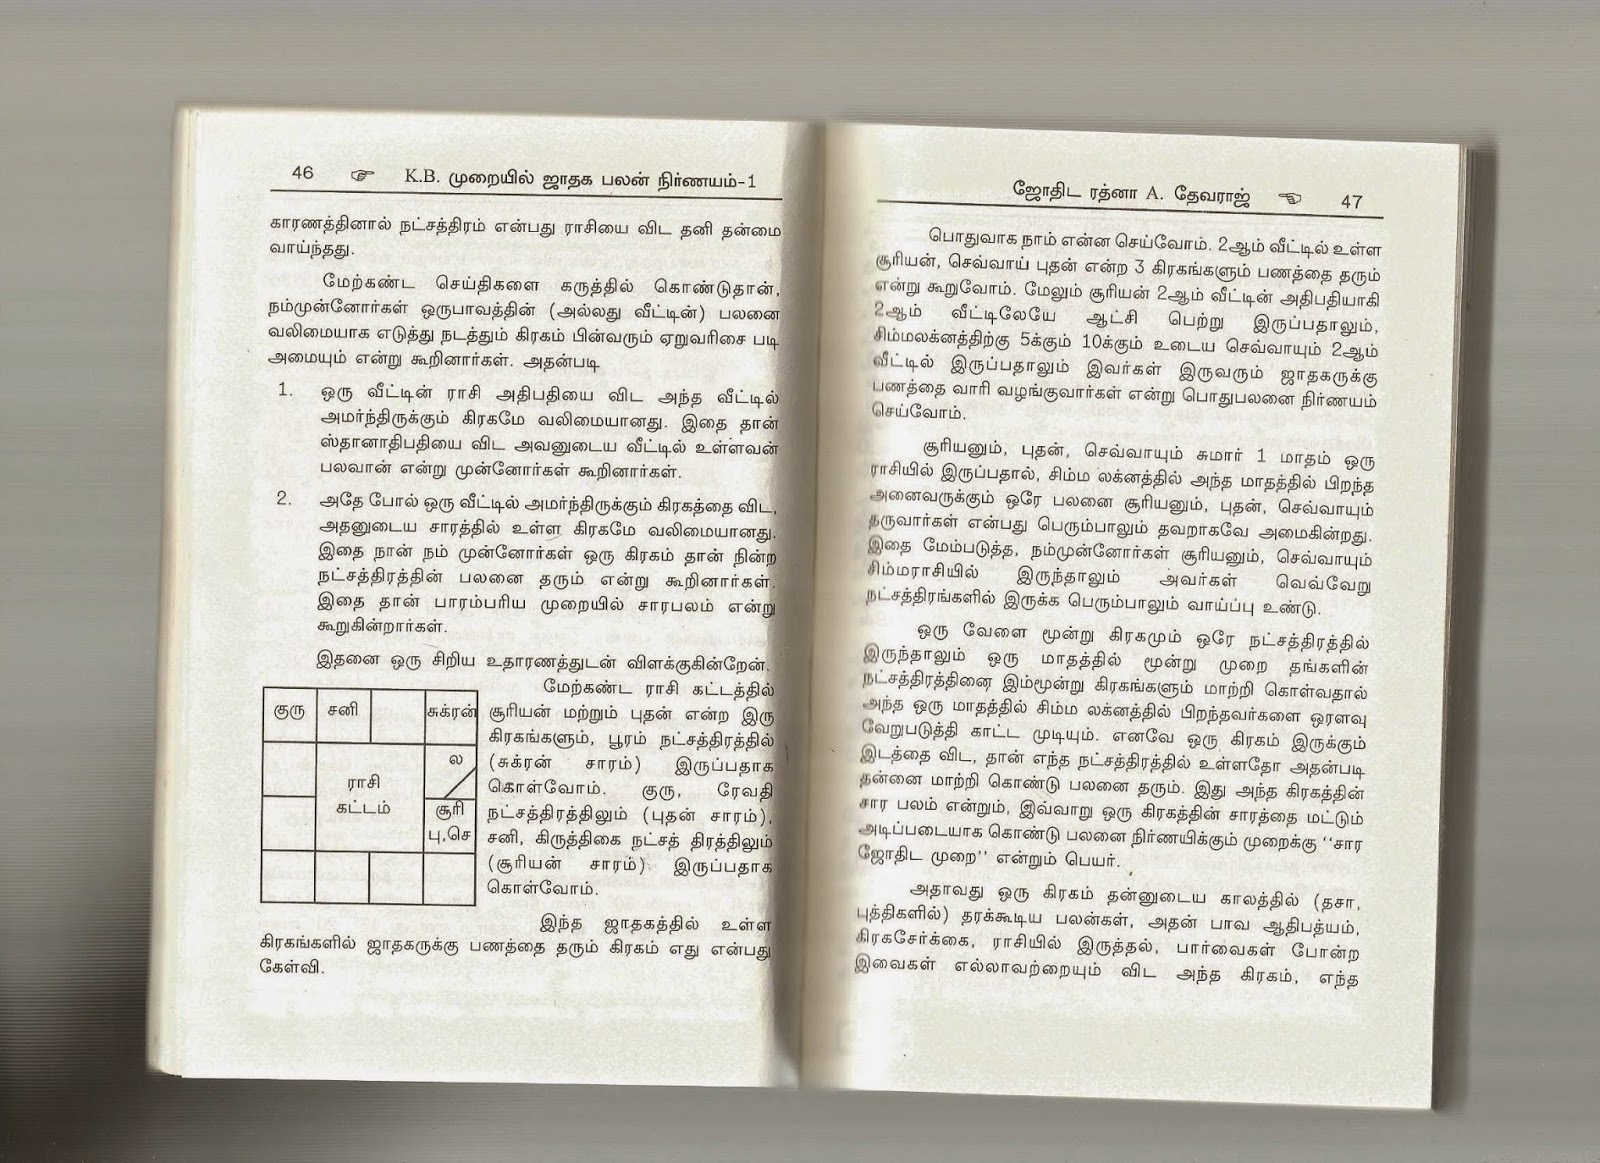 46 K.B. முறையில் ஜாதக பலன் நிர்ணயம்-1
காரணத்தினால் நட்சத்திரம் என்பது ராசியை விட தனி தன்மை
வாய்ந்தது.
மேற்கண்ட செய்திகளை கருத்தில் கொண்டுதான்,
நம்முன்னோர்கள் ஒருபாவத்தின் (அல்லது வீட்டின்) பலனை
வலிமையாக எடுத்து நடத்தும் கிரகம் பின்வரும் ஏறுவரிசை படி
அமையும் என்று கூறினார்கள். அதன்படி
1. ஒரு வீட்டின் ராசி அதிபதியை விட அந்த வீட்டில்
அமர்ந்திருக்கும் கிரகமே வலிமையானது. இதை தான்
ஸ்தானாதிபதியை விட அவனுடைய வீட்டில் உள்ளவன்
பலவான் என்று முன்னோர்கள் கூறினார்கள்.
2. அதே போல் ஒரு வீட்டில் அமர்ந்திருக்கும் கிரகத்தை விட,
அதனுடைய சாரத்தில் உள்ள கிரகமே வலிமையானது.
இதை நான் நம் முன்னோர்கள் ஒரு கிரகம் தான் நின்ற
நட்சத்திரத்தின் பலனை தரும் என்று கூறினார்கள்.
இதை தான் பாரம்பரிய முறையில் சாரபலம் என்று
கூறுகின்றார்கள்.
இதனை ஒரு சிறிய உதாரணத்துடன் விளக்குகின்றேன்.
குரு சனி சுக்ரன்
ல
ராசி
கட்டம்
சூரி
பு,செ
மேற்கண்ட ராசி கட்டத்தில்
சூரியன் மற்றும் புதன் என்ற இரு
கிரகங்களும், பூரம் நட்சத்திரத்தில்
(சுக்ரன் சாரம்) இருப்பதாக
கொள்வோம். குரு, ரேவதி
நட்சத்திரத்திலும் (புதன் சாரம்),
சனி, கிருத்திகை நட்சத் திரத்திலும்
(சூரியன் சாரம்) இருப்பதாக
கொள்வோம்.
இந்த ஜாதகத்தில் உள்ள
கிரகங்களில் ஜாதகருக்கு பணத்தை தரும் கிரகம் எது என்பது
கேள்வி.
ஜோதிட ரத்னா A. தேவராஜ் 47
பொதுவாக நாம் என்ன செய்வோம். 2ஆம் வீட்டில் உள்ள
சூரியன், செவ்வாய் புதன் என்ற 3 கிரகங்களும் பணத்தை தரும்
என்று கூறுவோம். மேலும் சூரியன் 2ஆம் வீட்டின் அதிபதியாகி
2ஆம் வீட்டிலேயே ஆட்சி பெற்று இருப்பதாலும்,
சிம்மலக்னத்திற்கு 5க்கும் 10க்கும் உடைய செவ்வாயும் 2ஆம்
வீட்டில் இருப்பதாலும் இவர்கள் இருவரும் ஜாதகருக்கு
பணத்தை வாரி வழங்குவார்கள் என்று பொதுபலனை நிர்ணயம்
செய்வோம்.
சூரியனும், புதன், செவ்வாயும் சுமார் 1 மாதம் ஒரு
ராசியில் இருப்பதால், சிம்ம லக்னத்தில் அந்த மாதத்தில் பிறந்த
அனைவருக்கும் ஒரே பலனை சூரியனும், புதன், செவ்வாயும்
தருவார்கள் என்பது பெரும்பாலும் தவறாகவே அமைகின்றது.
இதை மேம்படுத்த, நம்முன்னோர்கள் சூரியனும், செவ்வாயும்
சிம்மராசியில் இருந்தாலும் அவர்கள் வெவ்வேறு
நட்சத்திரங்களில் இருக்க பெரும்பாலும் வாய்ப்பு உண்டு.
ஒரு வேளை மூன்று கிரகமும் ஒரே நட்சத்திரத்தில்
இருந்தாலும் ஒரு மாதத்தில் மூன்று முறை தங்களின்
நட்சத்திரத்தினை இம்மூன்று கிரகங்களும் மாற்றி கொள்வதால்
அந்த ஒரு மாதத்தில் சிம்ம லக்னத்தில் பிறந்தவர்களை ஓரளவு
வேறுபடுத்தி காட்ட முடியும். எனவே ஒரு கிரகம் இருக்கும்
இடத்தை விட, தான் எந்த நட்சத்திரத்தில் உள்ளதோ அதன்படி
தன்னை மாற்றி கொண்டு பலனை தரும். இது அந்த கிரகத்தின்
சார பலம் என்றும், இவ்வாறு ஒரு கிரகத்தின் சாரத்தை மட்டும்
அடிப்படையாக கொண்டு பலனை நிர்ணயிக்கும் முறைக்கு “சார
ஜோதிட முறை” என்றும் பெயர்.
அதாவது ஒரு கிரகம் தன்னுடைய காலத்தில் (தசா,
புத்திகளில்) தரக்கூடிய பலன்கள், அதன் பாவ ஆதிபத்யம்,
கிரகசேர்க்கை, ராசியில் இருத்தல், பார்வைகள் போன்ற
இவைகள் எல்லாவற்றையும் விட அந்த கிரகம், எந்த